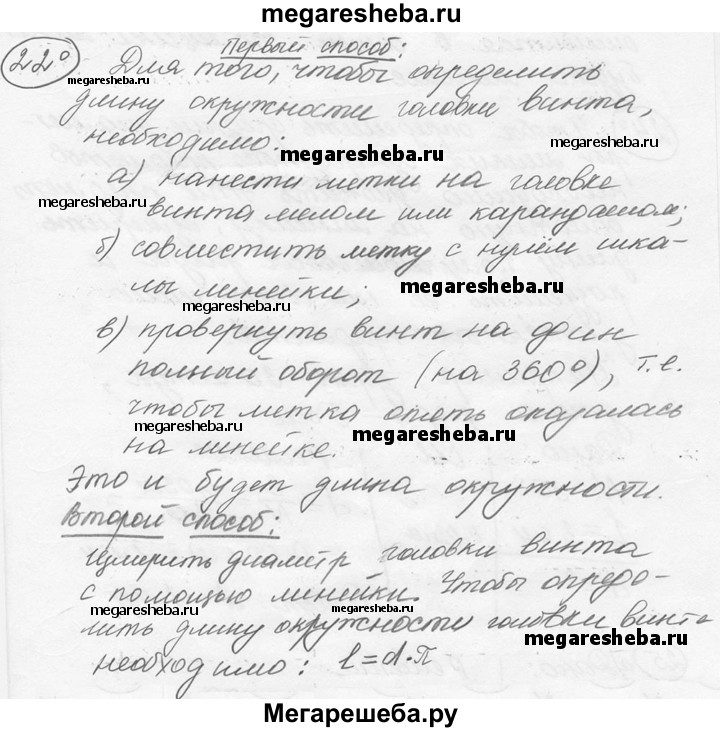 megaresheba.ru
22°
Первый способ:
Для того, чтобы определить
megaresheba.ru
длину окружности головки винта,
необходимо:
megaresheba.ru
а) нанести метки на головке
megaresheba.ru
винта мелом или карандашом;
б) совместить метку с нулём шка-
лы линейки;
megaresheba.ru
megaresheba.ru
в) провернуть винт на один
полный оборот (на 360°), т.е.
чтобы метка опять оказалась
на линейке.
megaresheba.ru
megaresheba.ru
Это и будет длина окружности.
Второй способ:
Измерить диаметр головки винта
с помощью линейки. Чтобы опреде-
megaresheba.ru
megaresheba.ru
лить длину окружности головки винта
megaresheba.ru
необходимо: l=d·π
megaresheba.ru
Мегарешеба.ру